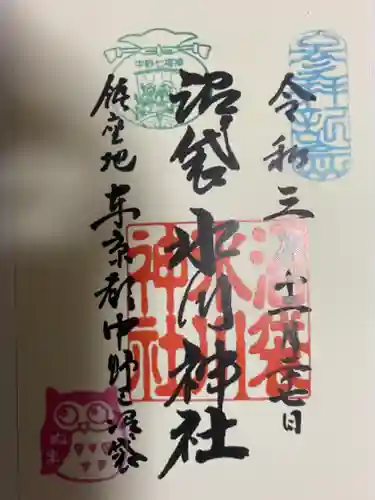 参拝記念
令和三年十二月二十七日
沼袋氷川神社
沼袋
氷川
神社
中野七福神
鎮座地 東京都中野区沼袋